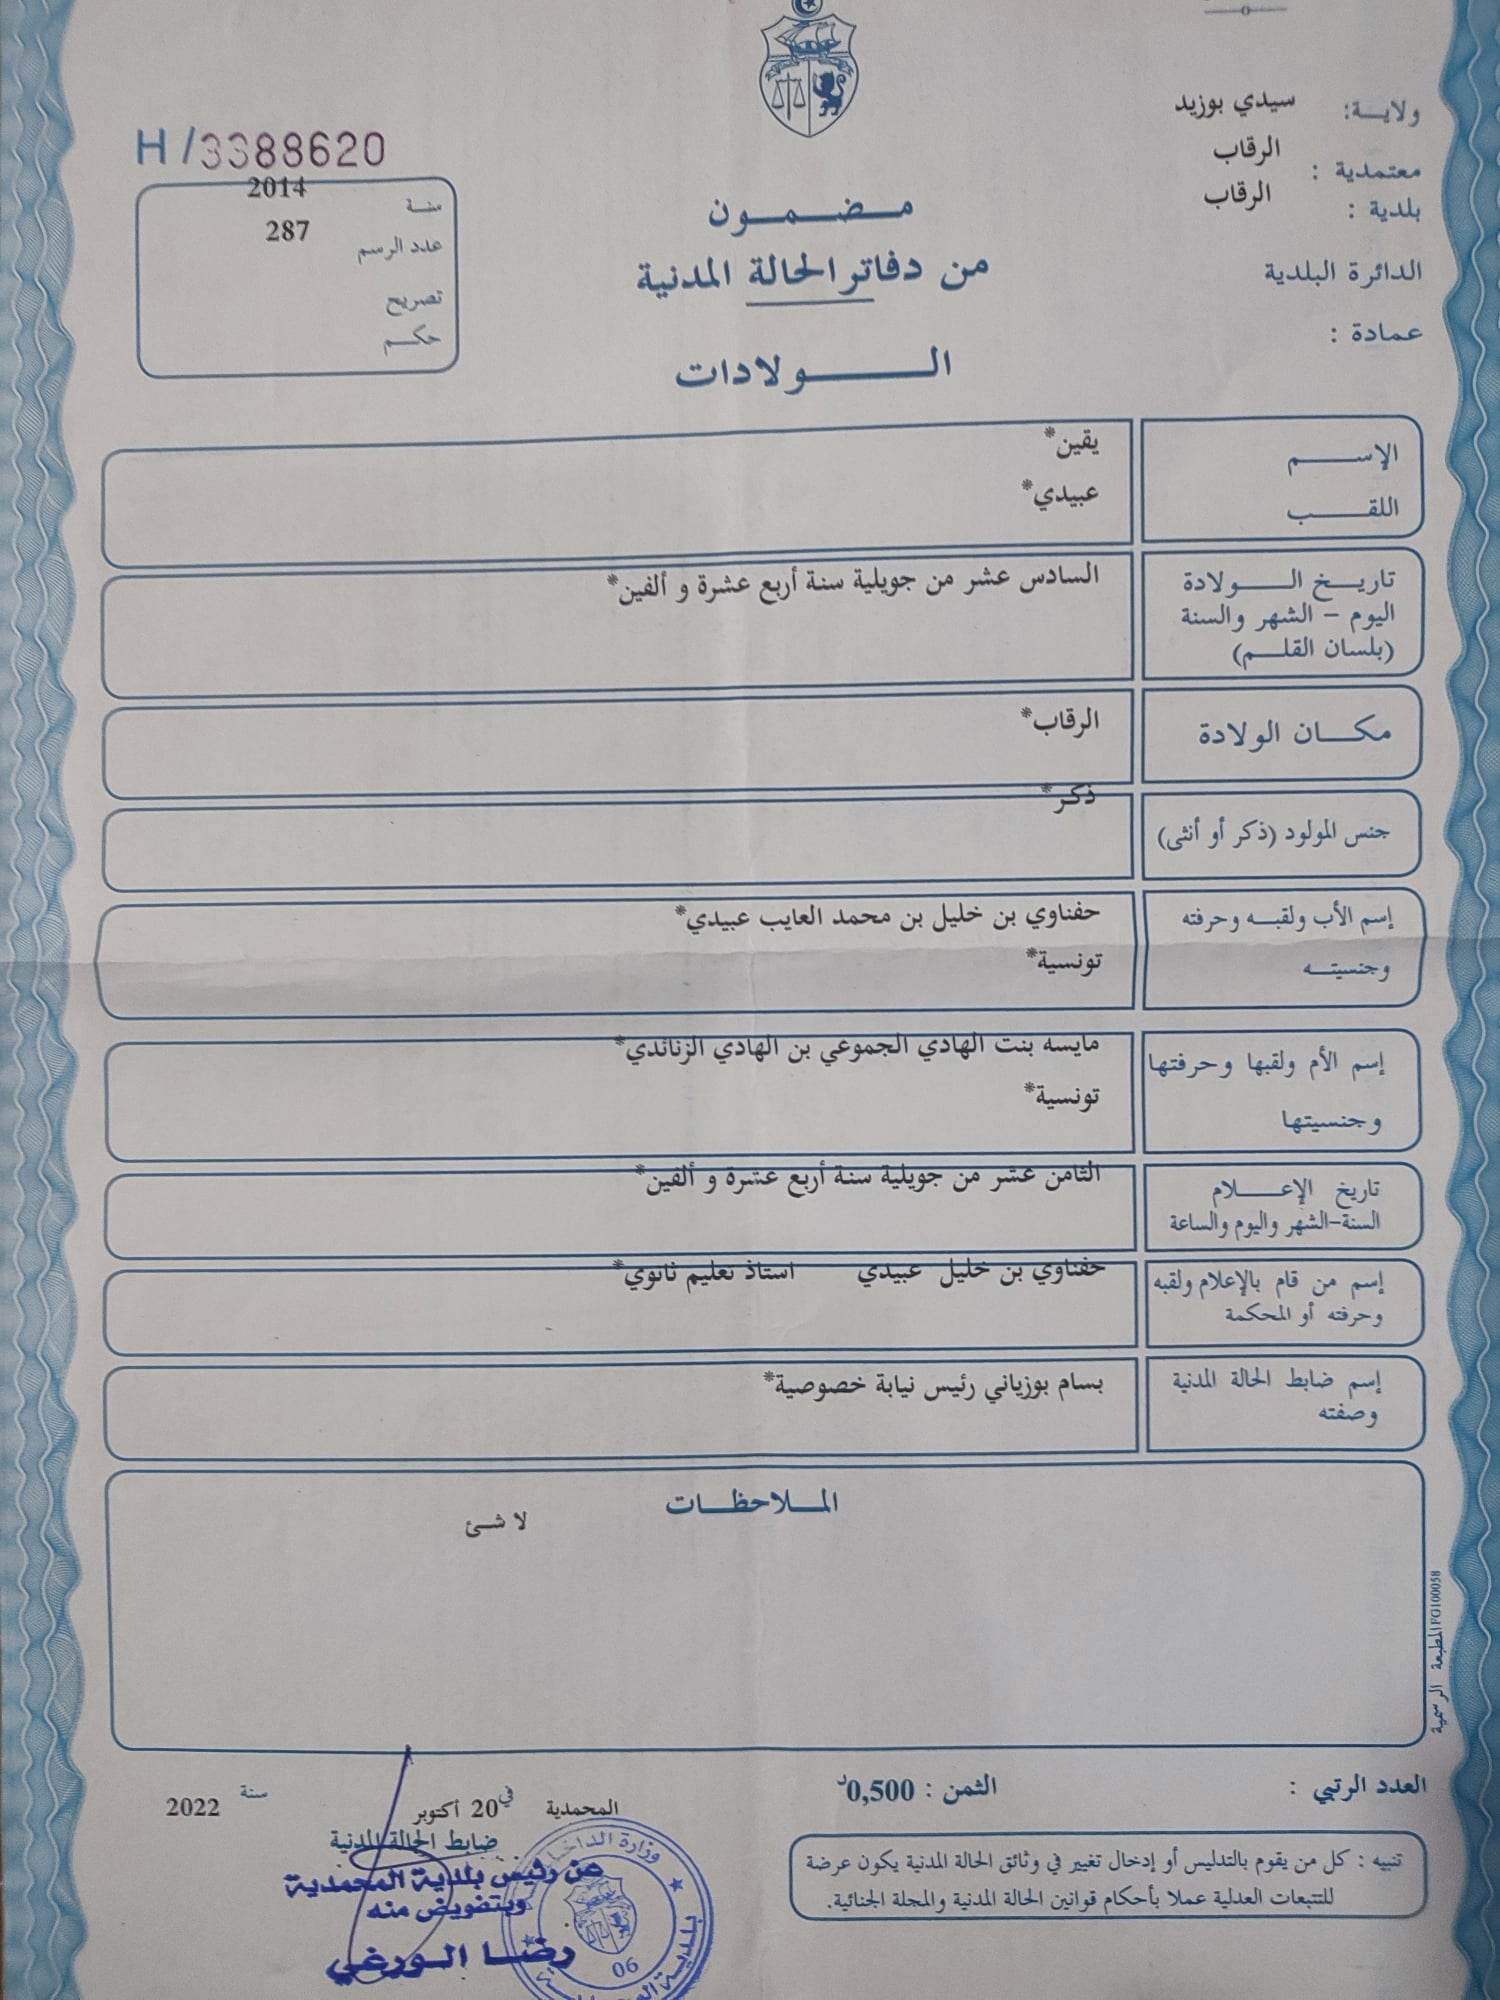 ولايـــة: سيدي بوزيد
معتمدية : الرقاب
بلدية : الرقاب
الدائرة البلدية
عمادة :
H/3388620
سنــة 2014
عدد الرسم 287
تصريح
حكــم
مــضــمــون
من دفاتر الحالة المدنية
الــــولادات
الإســـــم يقين*
اللقـــــب عبيدي*
تاريـــخ الـــــولادة السادس عشر من جويلية سنة أربع عشرة و ألفين*
اليوم – الشهر والسنة
(بلسان القلـــم)
مكـــان الولادة الرقاب*
جنس المولود (ذكر أو أنثى) ذكر*
إسم الأب ولقبـــه وحرفته حفناوي بن خليل بن محمد العايب عبيدي*
وجنسيتــه تونسية*
إسم الأم ولقبها وحرفتها مايسه بنت الهادي الجموعي بن الهادي الزنائدي*
وجنسيتها تونسية*
تاريخ الإعـــــلام الثامن عشر من جويلية سنة أربع عشرة و ألفين*
السنة-الشهر واليوم والساعة
إسم من قام بالإعلام ولقبه حفناوي بن خليل عبيدي استاذ تعليم ثانوي*
وحرفته أو المحكمة
إسم ضابط الحالة المدنية بسام بوزياني رئيس نيابة خصوصية*
وصفته
المـــلاحظـــات
لا شئ
المطبعة الرسمية FG100058
العدد الرتبي :
الثمن : 0,500د
المحمدية في 20 أكتوبر سنة 2022
ضابط الحالة المدنية
عن رئيس بلدية المحمدية
وبتفويض منه
رضــا الــورغي
وزارة الداخلية
06
تنبيه : كل من يقوم بالتدليس أو إدخال تغيير في وثائق الحالة المدنية يكون عرضة
للتتبعات العدلية عملا بأحكام قوانين الحالة المدنية والمجلة الجنائية.